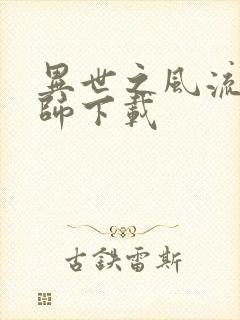 異世之風流
師下載
古鉄雷斯